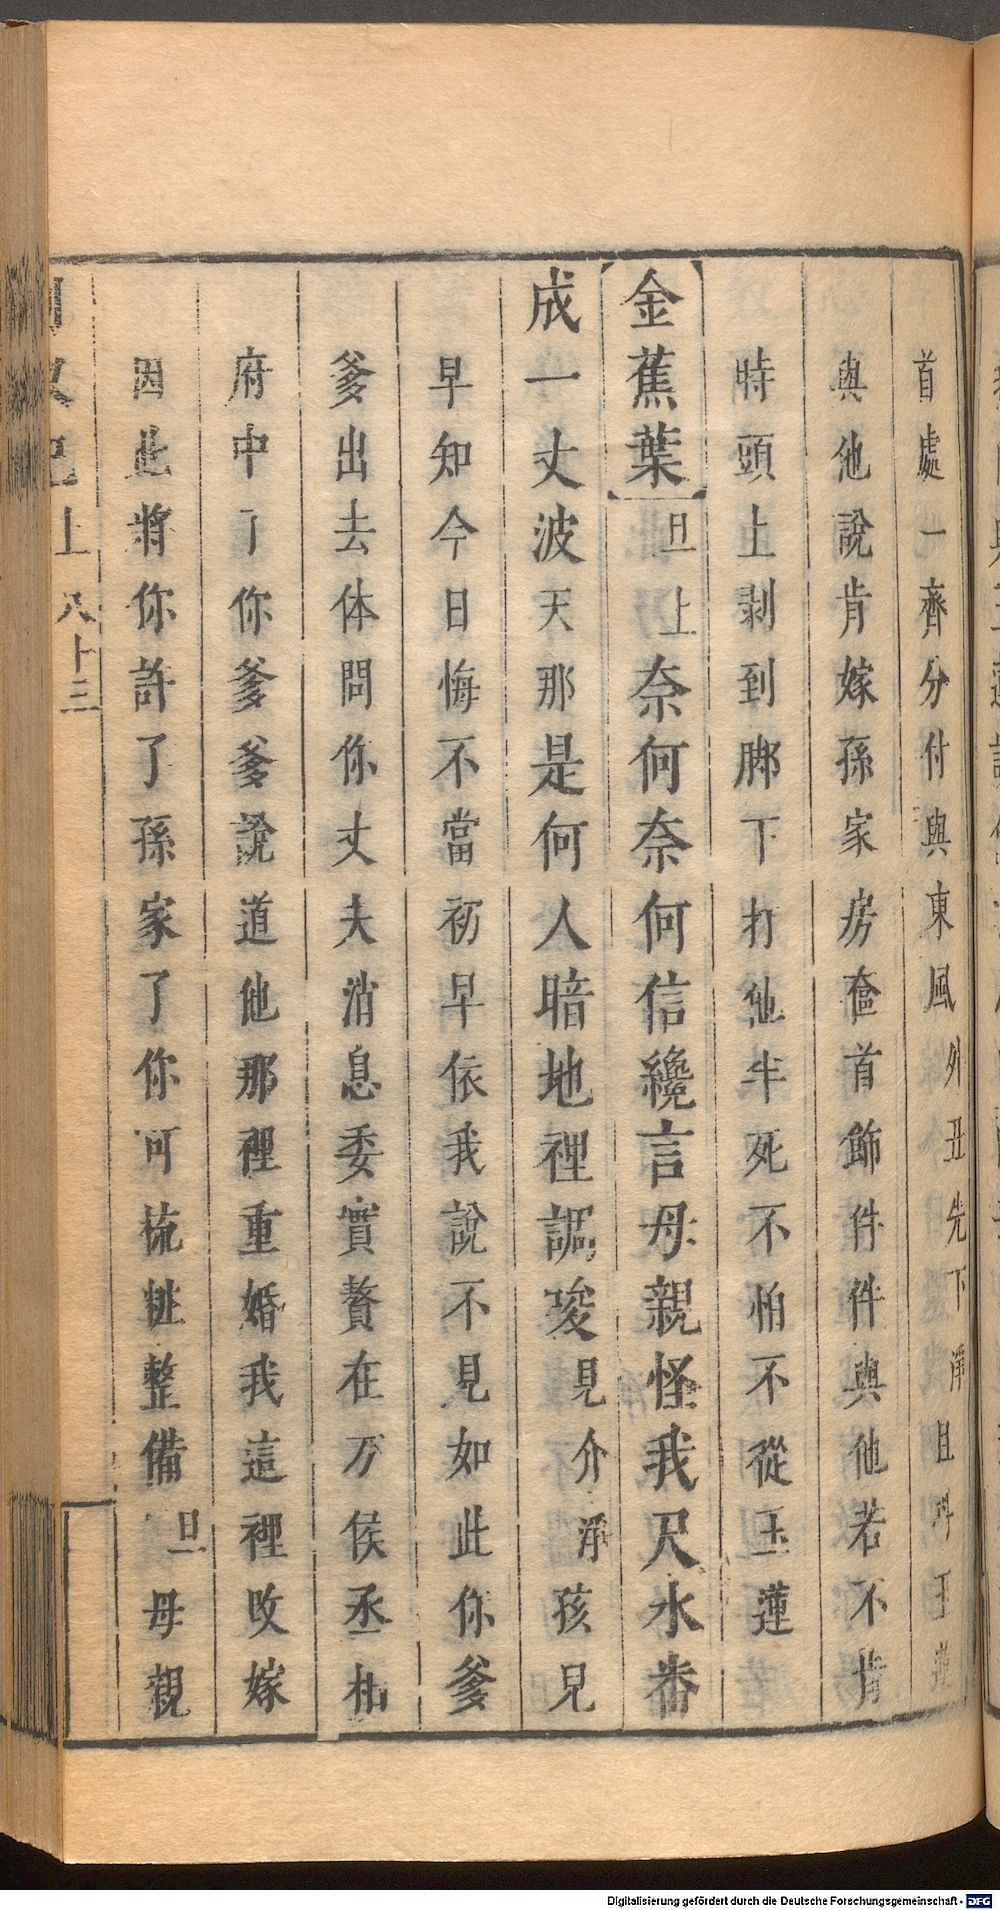 首處一齊分付與東風外丑先下淨
與他說肯嫁孫家房奩首飾件件與他若不肯
時頭上剥到脚下打他半死不怕不從玉蓮
金蕉葉旦上奈何奈何信纔言母親怪我尺水番
成一丈波天那是何人暗地裡調唆見介淨孩兒
早知今日悔不當初早依我說不見如此你爹
爹出去体問你丈夫消息委實贅在万俟丞相
府中了你爹爹說道他那裡重婚我這裡改嫁
因此將你許了孫家了你可梳粧整備旦母親
上 八十三
Digitalisierung gefördert durch die Deutsche Forschungsgemeinschaft - DFG